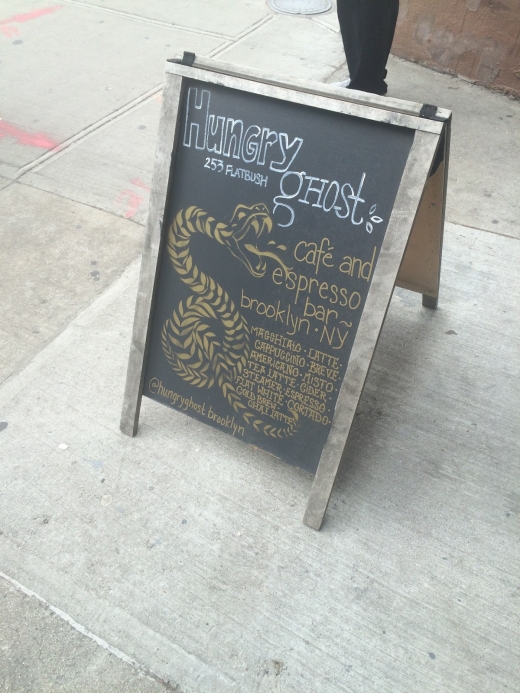 Hungry
253 FLATBUSH
gHost
café and
espresso
bar~
brooklyn · NY
MACCHIATO · LATTE ·
CAPPUCCINO · BREVE
AMERICANO · MISTO ·
TEA LATTE · CIDER ·
STEAMER · ESPRESSO ·
FLAT WHITE · CORTADO ·
COLD BREW ·
CHAI LATTE
@hungryghost.brooklyn